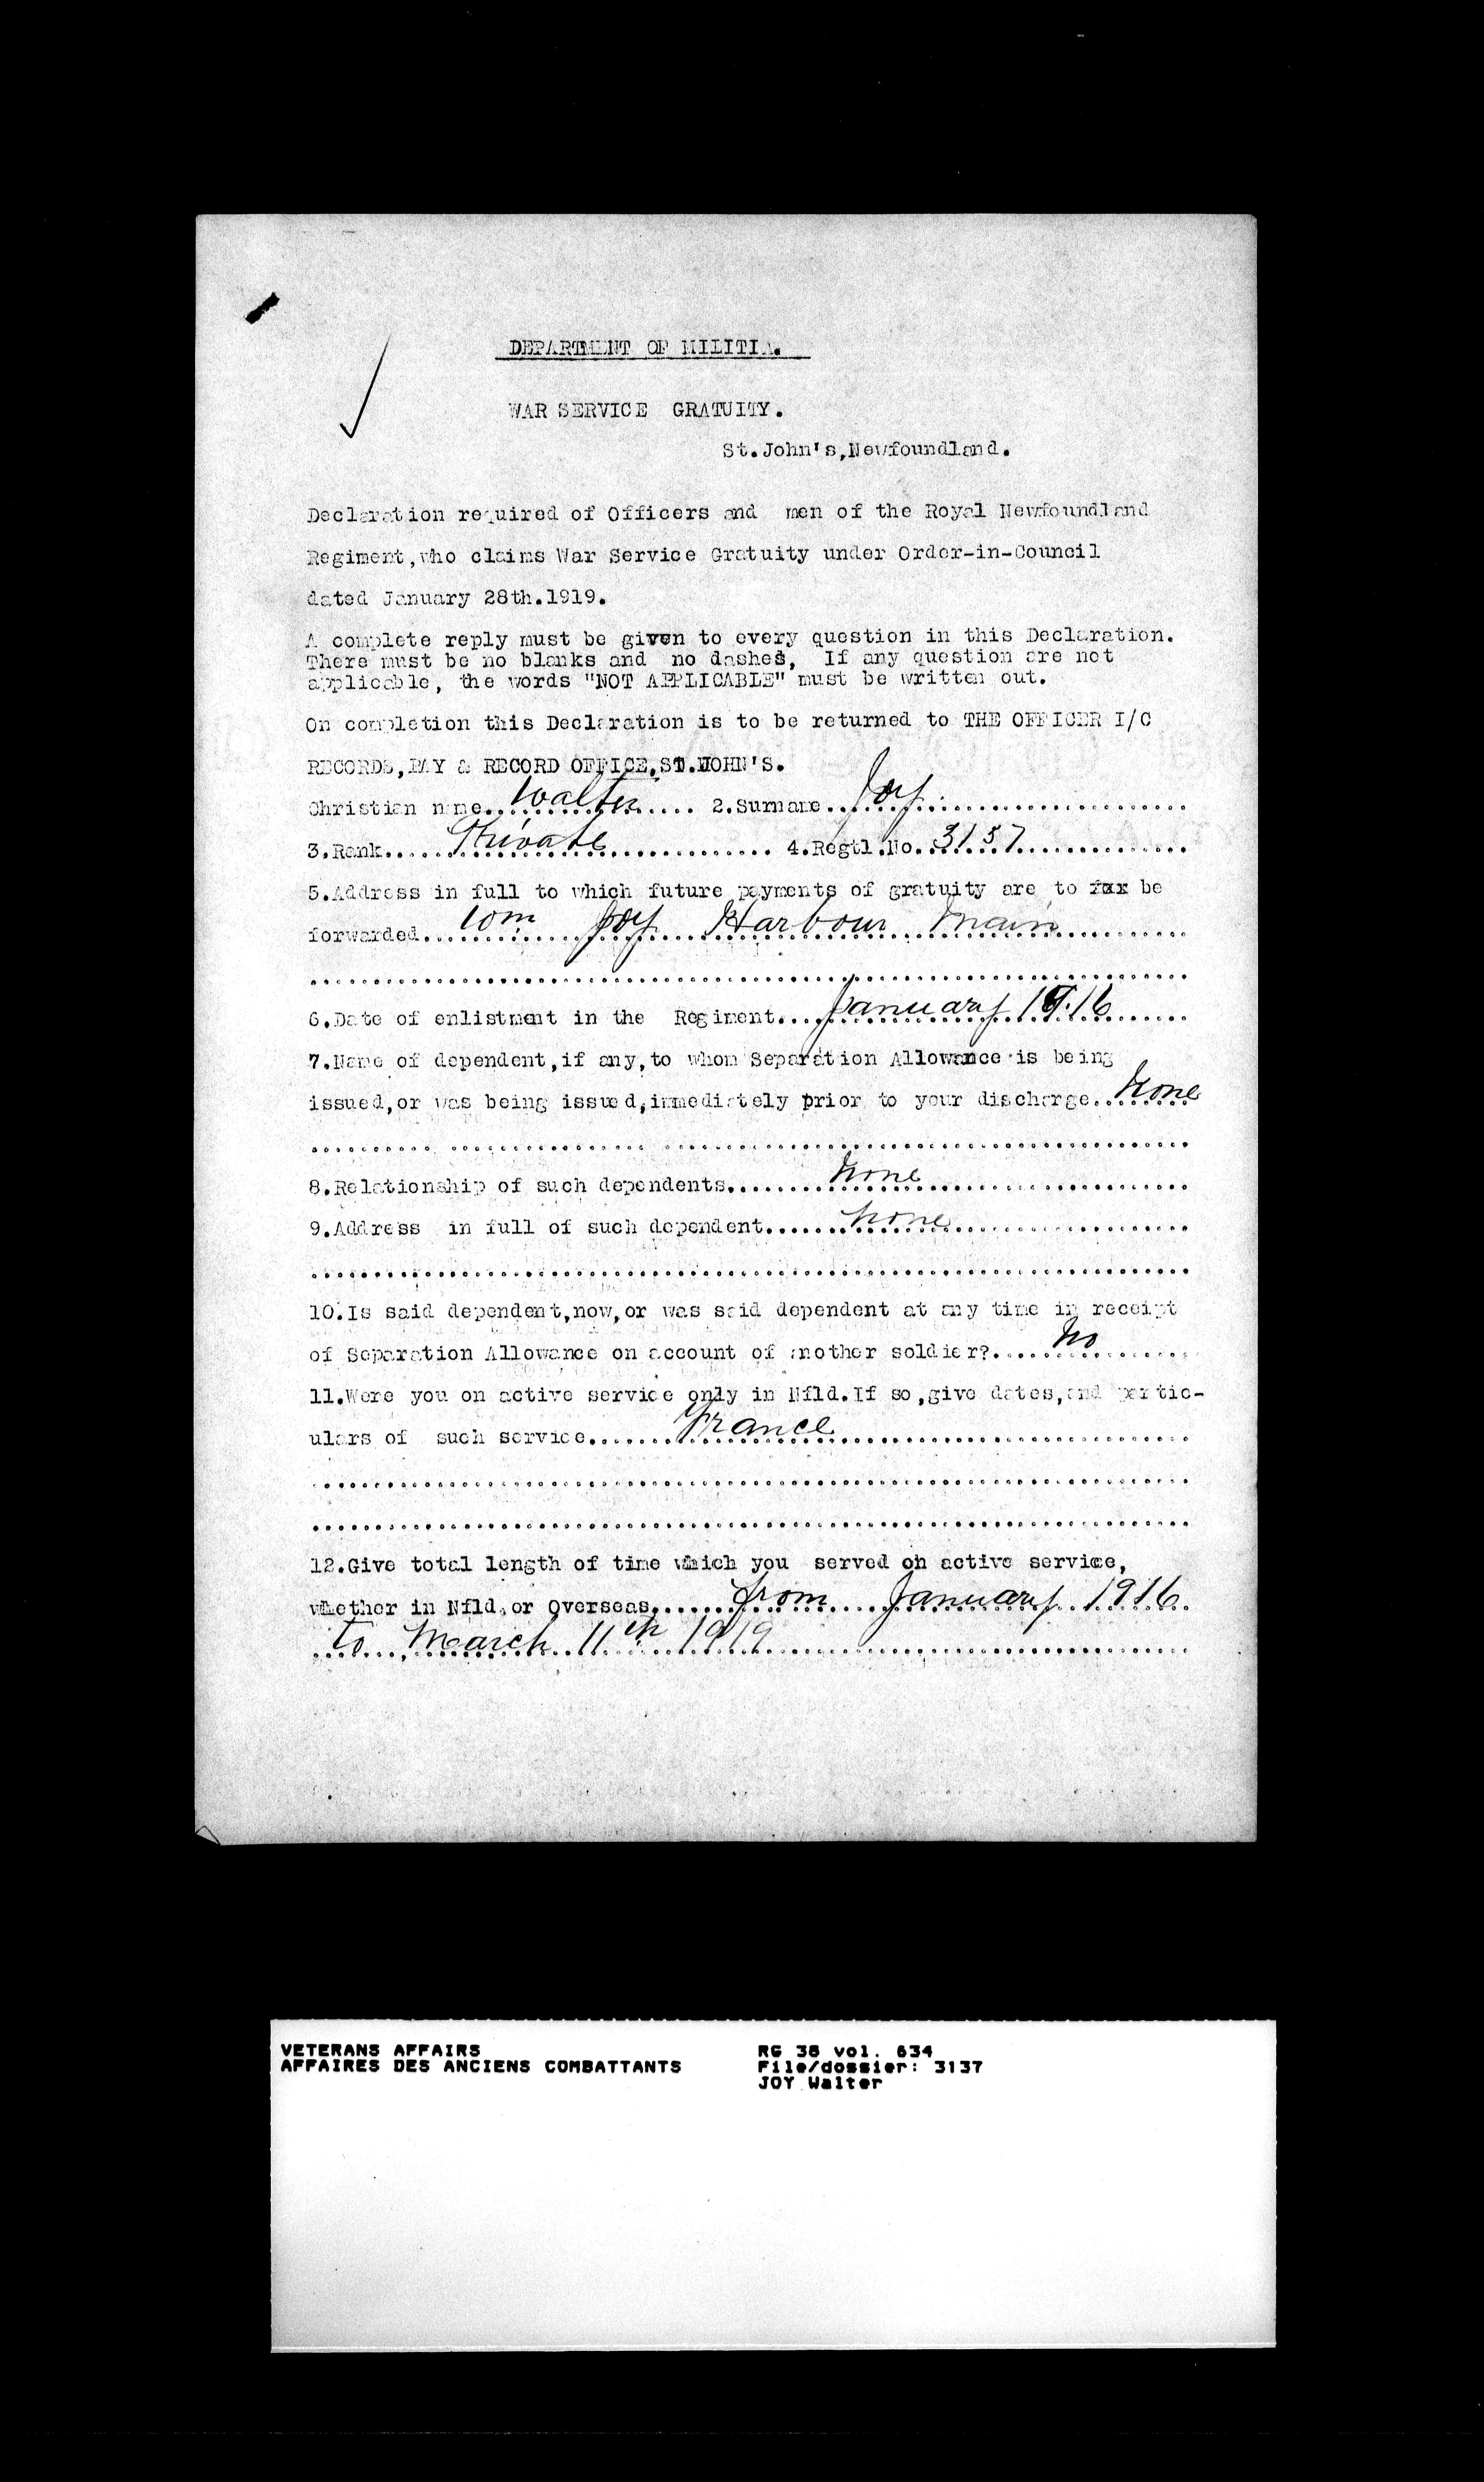 DEPARTMENT OF MILITIA.
WAR SERVICE GRATUITY.
St.John's,Newfoundland.
Declaration required of Officers and men of the Royal Newfoundland
Regiment,who claims War Service Gratuity under Order-in-Council
dated January 28th.1919.
A complete reply must be given to every question in this Declaration.
There must be no blanks and no dashes, If any question are not
applicable, the words "NOT APPLICABLE" must be written out.
On completion this Declaration is to be returned to THE OFFICER I/C
RECORDS,PAY & RECORD OFFICE,ST.JOHN'S.
Christian name..Walter.... 2.Surname...Joy...
3.Rank....Private.... 4.Regtl.No.3157....
5.Address in full to which future payments of gratuity are to be
forwarded...Wm Joy Harbour Main....
6.Date of enlistment in the Regiment...January 1916....
7.Name of dependent,if any,to whom Separation Allowance is being
issued,or was being issued,immediately prior to your discharge..None
8.Relationship of such dependents....None....
9.Address in full of such dependent....None....
10.Is said dependent,now,or was said dependent at any time in receipt
of Separation Allowance on account of another soldier?....No....
11.Were you on active service only in Nfld.If so,give dates,and partic-
ulars of such service....France....
12.Give total length of time which you served on active service,
whether in Nfld.or Overseas....from January 1916
to March 11th 1919
VETERANS AFFAIRS RG 38 vol. 634
AFFAIRES DES ANCIENS COMBATTANTS File/dossier: 3137
JOY Walter